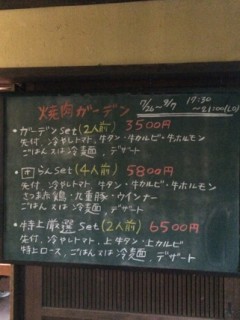 焼肉ガーデン 7/26〜9/7 17:30〜21:00(LO)
・ガーデンset(2人前) 3500円
先付、冷やしトマト、牛タン・牛カルビ・牛ホルモン
ごはん又は冷麺、デザート
・らんset(4人前) 5800円
先付、冷やしトマト、牛タン・牛カルビ・牛ホルモン
さつま赤鶏・九重豚・ウインナー
ごはん又は冷麺、デザート
・特上厳選set(2人前) 6500円
先付、冷やしトマト、上牛タン・上カルビ
特上ロース、ごはん又は冷麺、デザート